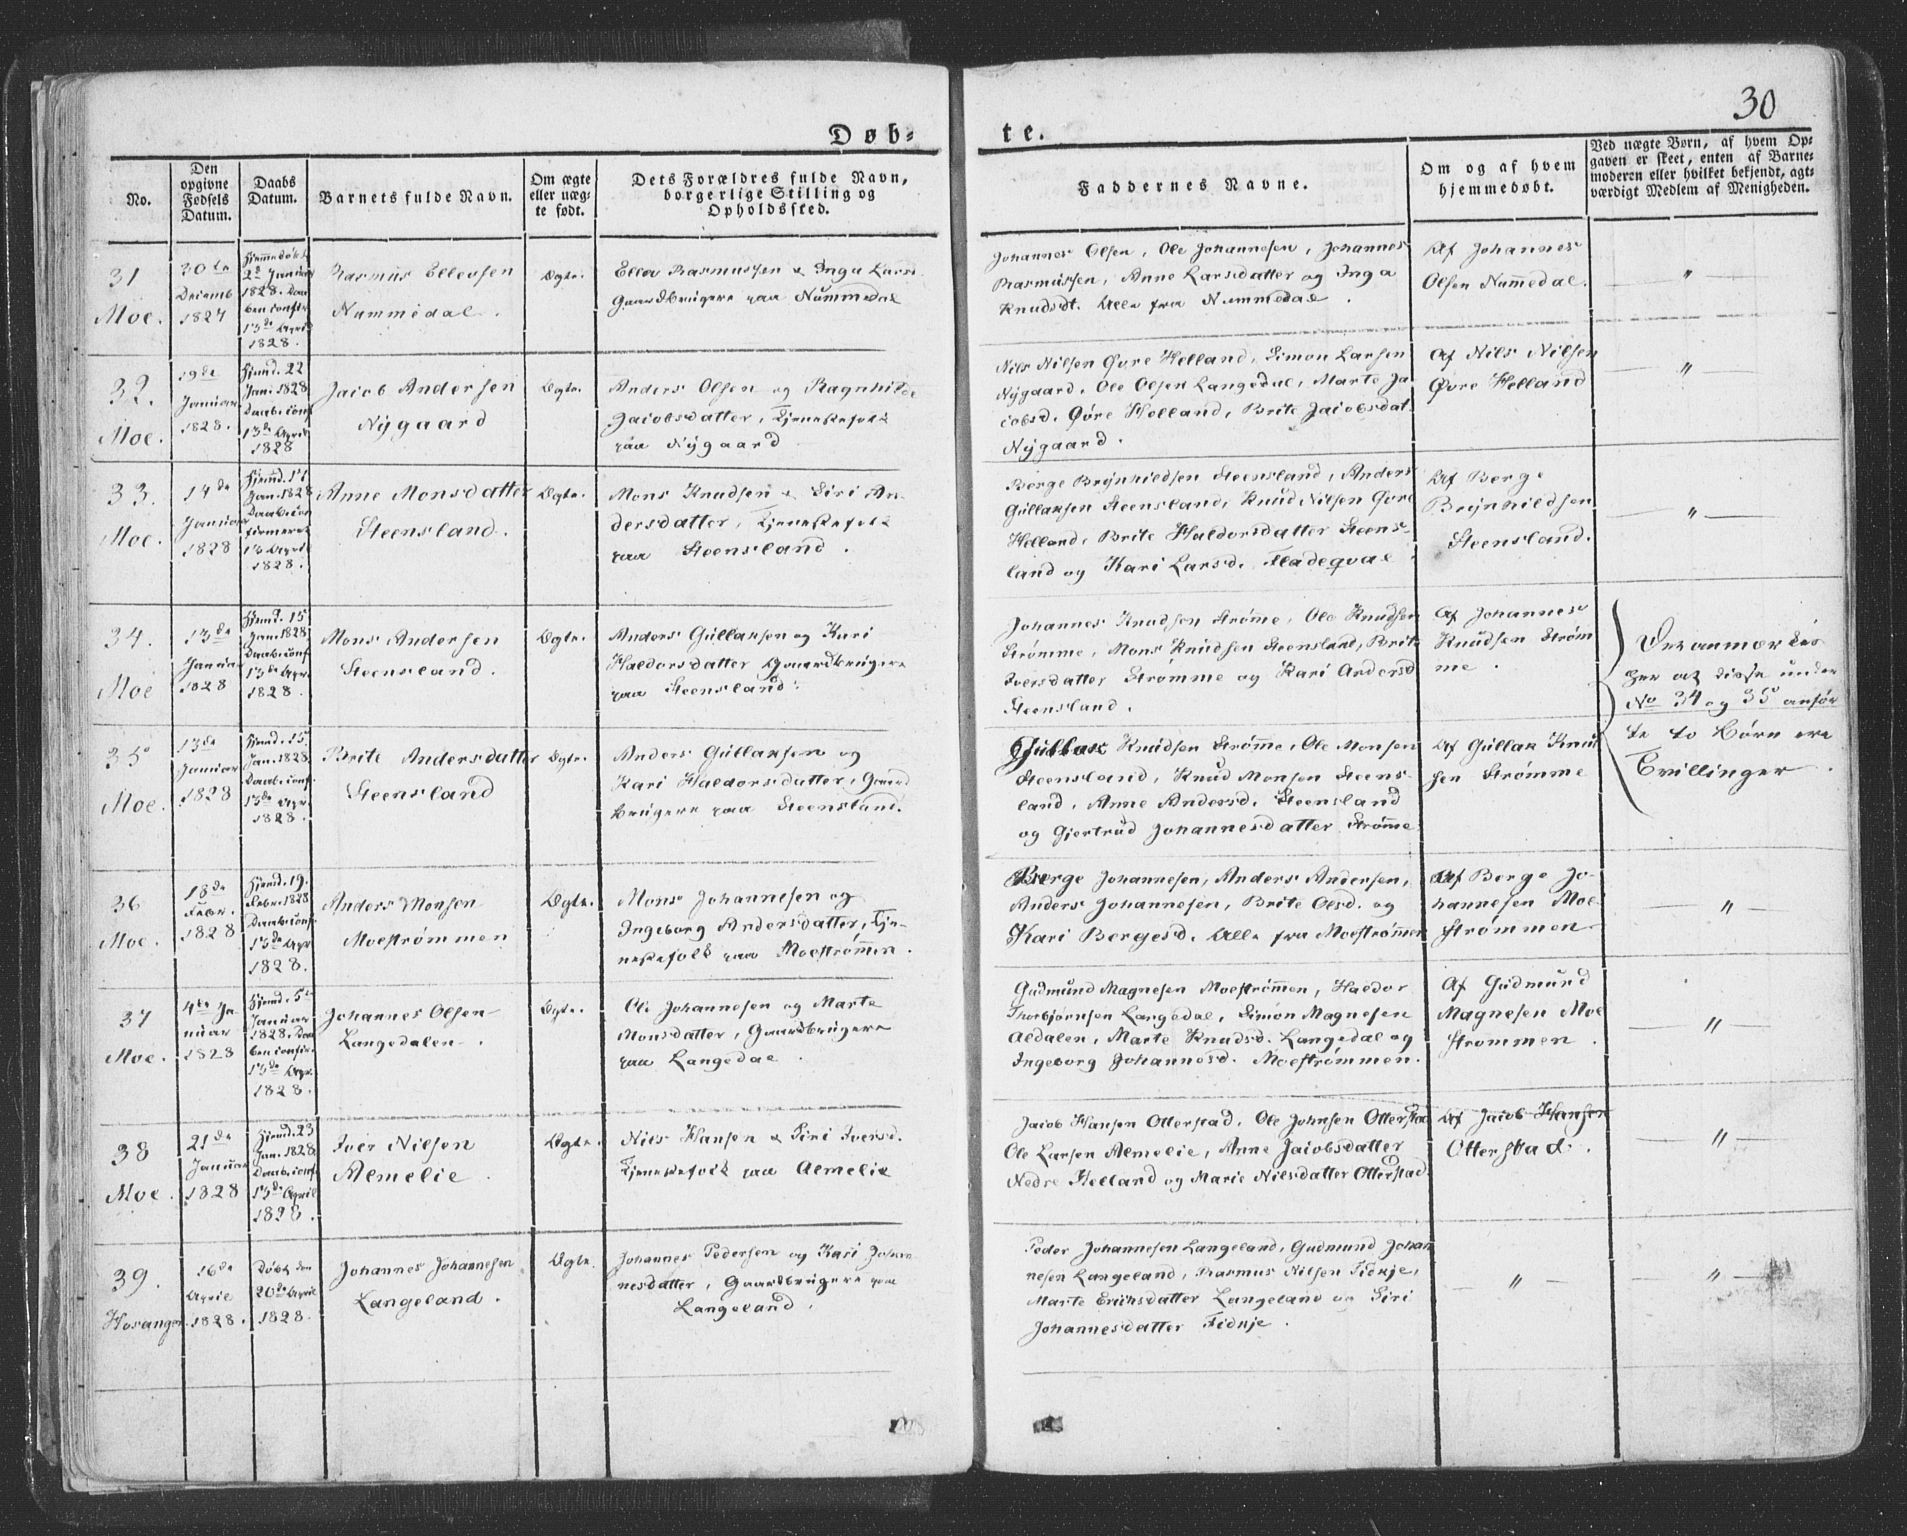 30
Døb-
te.
No.
Den
opgivne
Fødsels
Datum.
Daabs
Datum.
Barnets fulde Navn.
Om ægte
eller uæg-
te født.
Dets Forældres fulde Navn,
borgerlige Stilling og
Opholdssted.
Faddernes Navne.
Om og af hvem
hjemmedøbt.
Ved uægte Børn, af hvem Op-
gaven er skeet, enten af Barne-
moderen eller hvilket bekjendt, agt-
værdigt Medlem af Menigheden.
31
Moe.
30te
Decemb
1827
Hjemmedøbt
2d Januar
1828. Daa
ben confir
13de April
1828.
Rasmus Ellevsen
Nummedal.
Ægte.
Rasmussen & Inga
Gaardbrugere paa Nummedal
Johannes Olsen, Ole Johannesen, Johannes
Rasmussen, Anne Larsdatter og Inga
Knudsdt. Alle fra Nummedal.
Af Johannes
Olsen Nummedal.
"
32.
Moe.
19de
Januar
1828.
Hjemd. 22
Jan. 1828
Daab. conf
13de April
1828
Jacob Andersen
Nygaard
Ægte.
Anders Olsen og Ragnhilde
Jacobsdatter, Tjenestefolk
paa Nygaard
Nils Nilsen Øvre Helland, Simon Larsen
Nygaard, Ole Olsen Langedal, Marte Ja
cobsd. Øvre Helland, Brite Jacobsdat.
Nygaard.
Af Nils Nilsen
Øvre Helland
"
33.
Moe.
14de
Januar
1828
Hjemd. 17
Jan. 1828
Daab. con
firmeret
13 April
1828.
Anne Monsdatter
Steensland.
Ægte.
Mons Knudsen & Siri An-
dersdatter, Tjenestefolk
paa Steensland.
Berge Brynhildsen Steensland, Anders
Gullaksen Steensland, Knud Nilsen Øvre
Helland, Brite Haldorsdatter Steens-
land og Kari Larsd. Fladeqval
Af Berge
Brynhildsen
Steensland.
"
34.
Moe
13de
Januar
1828
Hjemd. 15
Jan. 1828
Daab. conf
13de Apr.
1828.
Mons Andersen
Steensland.
Ægte.
Anders Gullaksen og Kari
Haldorsdatter Gaardbrugere
paa Steensland.
Johannes Knudsen Strømme, Ole Knudsen
Strømme, Mons Knudsen Steensland, Brite
Iversdatter Strømme og Kari Andersd
Steensland.
Af Johannes
Knudsen Strøm
me.
Det anmærkes
her at disse under
No 34 og 35 anfør
te to Børn ere
Tvillinger.
35
Moe.
13de
Januar
1828
Hjemd. 15
Jan. 1828.
Daab. conf.
13de Apr.
1828.
Brite Andersdatter
Steensland
Ægte.
Anders Gullaksen og
Kari Haldorsdatter, Gaard
brugere paa Steensland.
Gullak Knudsen Strømme, Ole Monsen
Steensland, Knud Monsen Steens-
land, Anne Andersd. Steensland
og Gjertrud Johannesdatter Strømme
Af Gullak Knud
sen Strømme
36
Moe.
18de
Febr.
1828
Hjemd. 19.
Febr. 1828
Daab. conf
13de Apr.
1828.
Anders Monsen
Moestrømmen
Ægte.
Mons Johannesen og
Ingeborg Andersdatter, Tje-
nestefolk paa Moestrømmen.
Berge Johannesen, Anders Andersen,
Anders Johannesen, Brite Olsd. og
Kari Bergesd. Alle fra Moestrømmen
Af Berge Jo-
hannesen Moe
strømmen
"
37
Moe.
4te Ja
nuar
1828
Hjemd. 5te
Januar
1828. Daa
ben confir.
13de Apr.
1828.
Johannes Olsen
Langedalen.
Ægte.
Ole Johannesen og Marte
Monsdatter, Gaardbrugere
paa Langedal.
Gudmund Magnesen Moestrømmen, Haldor
Thorbjørnsen Langedal, Simon Magnesen
Aldalen, Marte Knudsd. Langedal og
Ingeborg Johannesd. Moestrømmen.
Af Gudmund
Magnesen Moe
strømmen.
"
38
Moe.
21de
Januar
1828
Hjemd. 23
Jan. 1828
Daab. conf
13de April
1828.
Iver Nilsen
Almelie.
Ægte.
Nils Hansen & Siri Iversd.
Tjenestefolk paa Almelie
Jacob Hansen Otterstad, Ole Johnsen Otterstad
Ole Larsen Almelie, Anne Jacobsdatter
Nedre Helland og Marie Nilsdatter Otterstad.
Af Jacob Hansen
Otterstad.
"
39.
Hosanger
16de
April
1828.
Døbt den
20de April
1828.
Johannes Johannesen
Langeland.
Ægte.
Johannes Pedersen og Kari Johan
nesdatter, Gaardbrugere paa
Langeland.
Peder Johannesen Langeland, Gudmund Johan
nesen Langeland, Rasmus Nilsen Tidnje,
Marte Erichsdatter Langeland og Siri
Johannesdatter Tidnje.
"
"